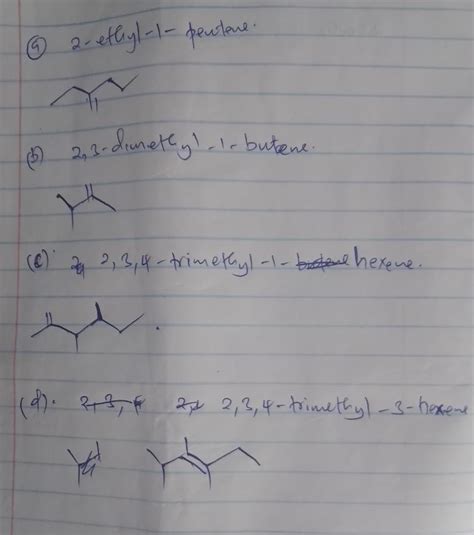 (a) 2-ethyl-1-pentene.
(b) 2,3-dimethyl-1-butene.
(c). 2,3,4-trimethyl-1-butene hexene.
(d). 2,3,4 2,3,4-trimethyl-3-hexene